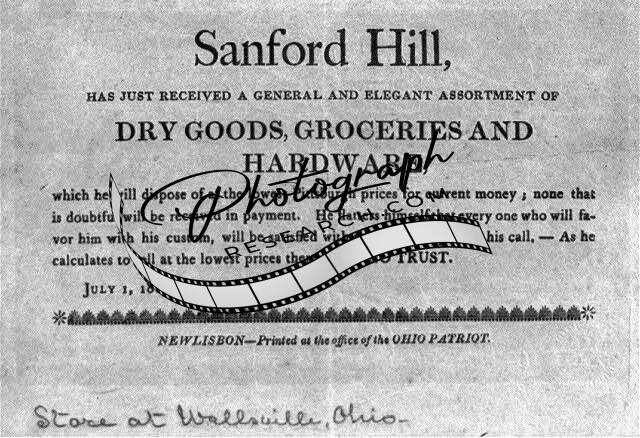 Sanford Hill,
HAS JUST RECEIVED A GENERAL AND ELEGANT ASSORTMENT OF
DRY GOODS, GROCERIES AND
HARDWARE
which he will dispose of at the lowest Pittsburgh prices for current money ; none that
is doubtful will be received in payment. He flatters himself that every one who will fa-
vor him with his custom, will be satisfied with his call, — As he
calculates to sell at the lowest prices NO TRUST.
JULY 1,
NEWLISBON—Printed at the office of the OHIO PATRIOT.
Store at Wellsville, Ohio-
Photograph
RESEARCH.COM